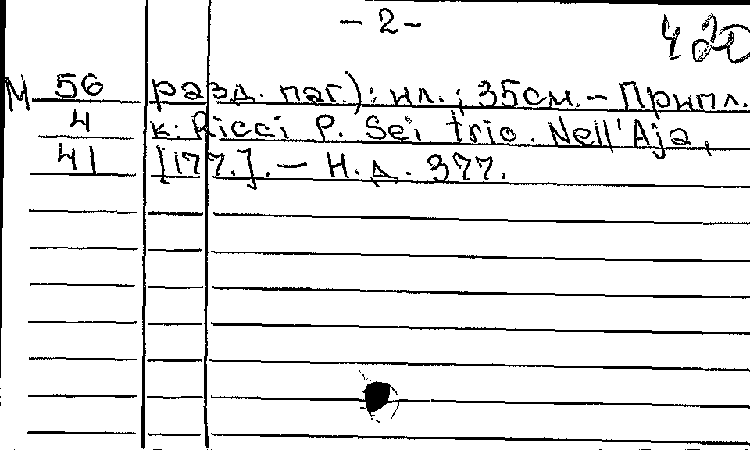 - 2 -
420
М 56 разд. паг.): ил.; 35см. - Припл.
4 к: Ricci P. Sei trio. Nell'Aja,
41 [177.]. - Н.д. 377.